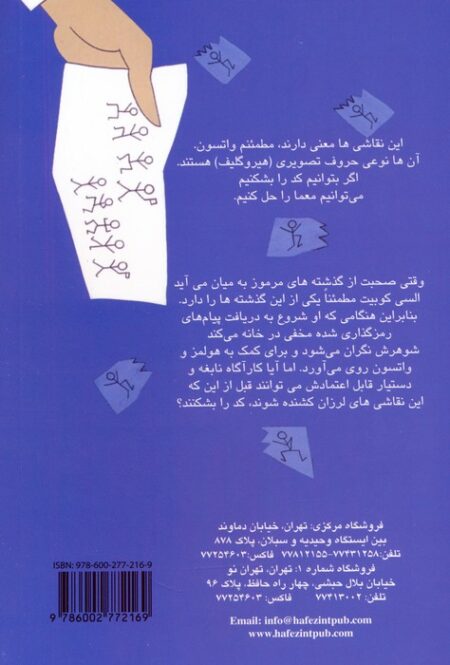 این نقاشی ها معنی دارند، مطمئنم واتسون.
آن ها نوعی حروف تصویری (هیروگلیف) هستند.
اگر بتوانیم کد را بشکنیم
می‌توانیم معما را حل کنیم.
وقتی صحبت از گذشته های مرموز به میان می آید
السی کوبیت مطمئناً یکی از این گذشته ها را دارد.
بنابراین هنگامی که او شروع به دریافت پیام‌های
رمزگذاری شده مخفی در خانه می‌کند
شوهرش نگران می‌شود و برای کمک به هولمز و
واتسون روی می‌آورد. اما آیا کارآگاه نابغه و
دستیار قابل اعتمادش می توانند قبل از این که
این نقاشی های لرزان کشنده شوند، کد را بشکنند؟
فروشگاه مرکزی: تهران، خیابان دماوند
بین ایستگاه وحیدیه و سبلان، پلاک ۸۷۸
تلفن: ۷۷۴۳۱۲۵۸–۷۷۸۱۲۱۵۵ فاکس: ۷۷۲۵۴۶۰۳
فروشگاه شماره ۱: تهران، تهران نو
خیابان بلال حبشی، چهار راه حافظ، پلاک ۹۶
تلفن: ۷۷۴۱۳۰۰۲ فاکس: ۷۷۲۵۴۶۰۳
Email: info@hafezintpub.com
www.hafezintpub.com
ISBN: 978-600-277-216-9
9 786002 772169